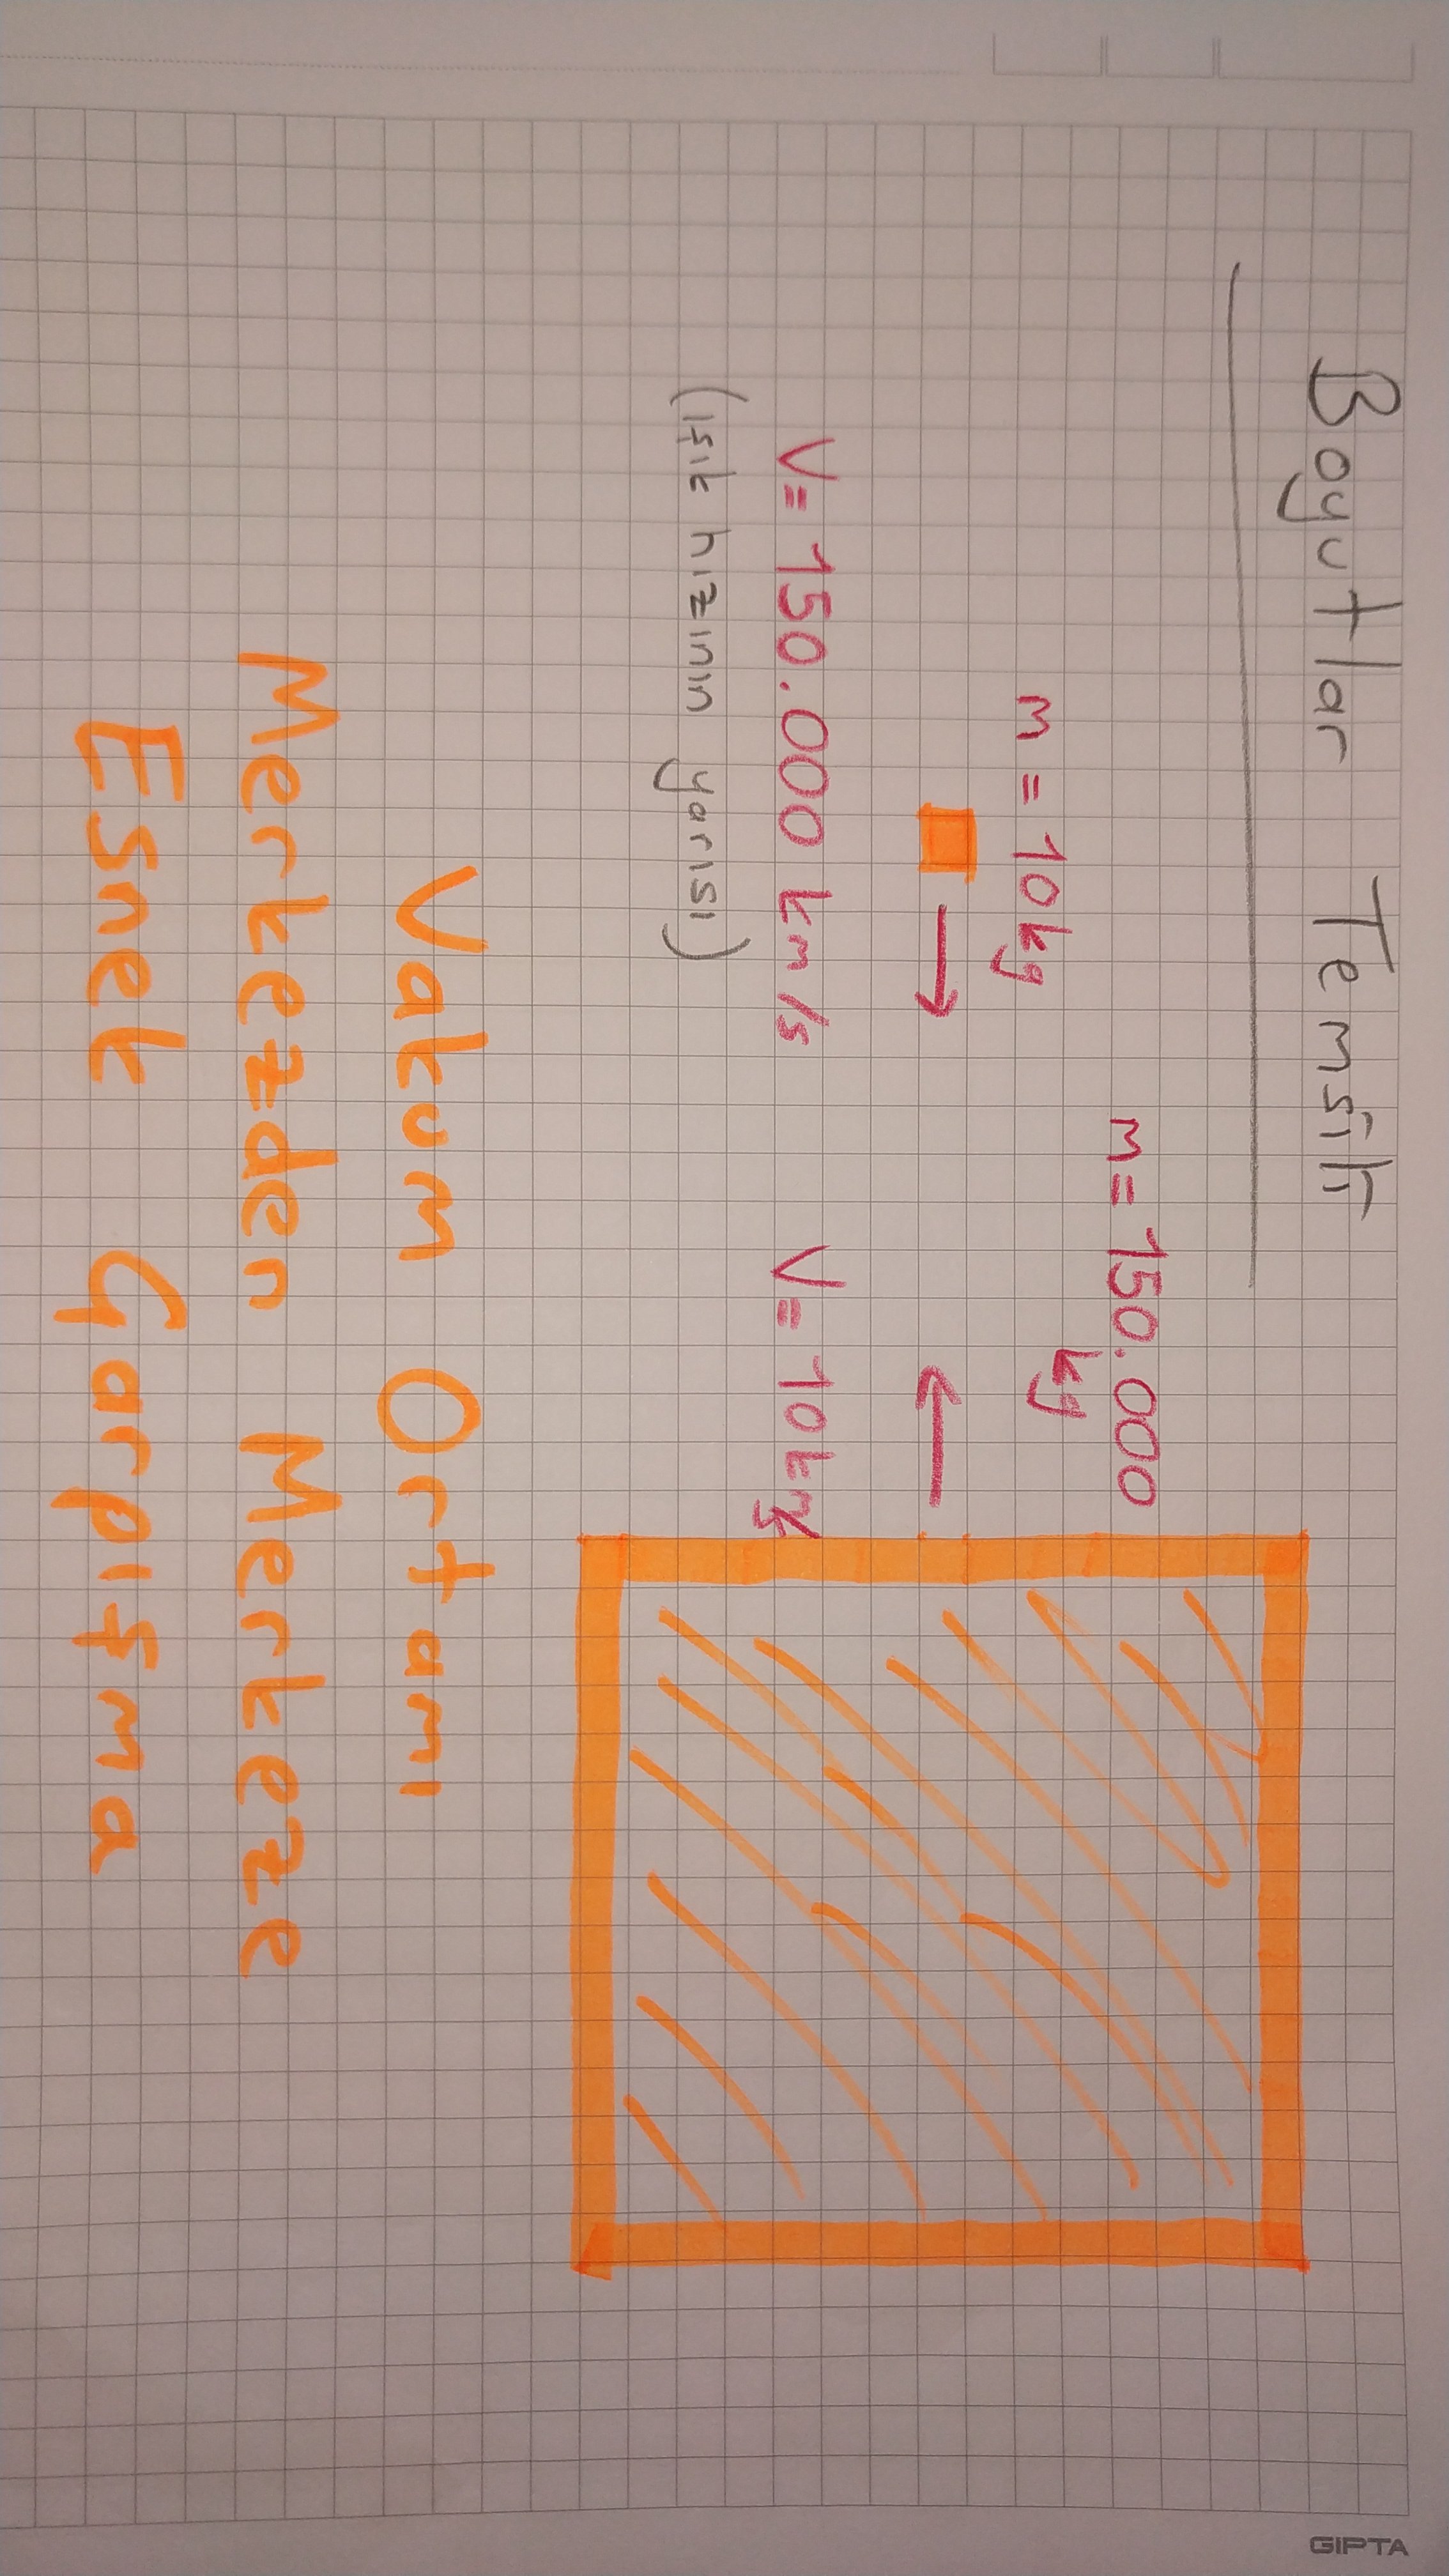 Boyutlar Temsili
m = 10kg
m = 150.000
kg
V = 150.000 km/s
V = 10km/s
(ışık hızının yarısı)
Vakum Ortamı
Merkezden Merkeze
Esnek Çarpışma
GIPTA